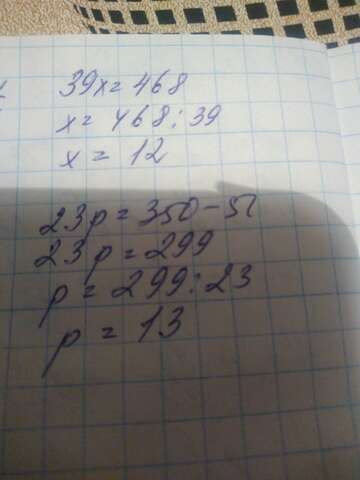 39x=468
x=468:39
x=12
23p=350-51
23p=299
p=299:23
p=13